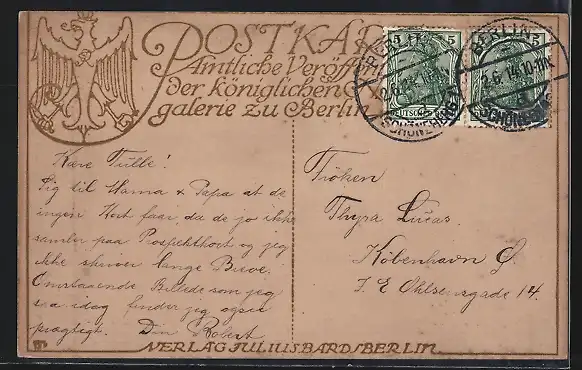 POSTKAR
Amtliche Veröff
der königlichen
galerie zu Berlin
5
5
BERLIN
SCHÖNEBERG
BERLIN
2.6.14.10-11
SCHÖNEB
Kære Tulle!
Sig til Mama & Papa at de
ingen Kort faar, da de jo ikke
samler paa Prospektkort og jeg
ikke skriver lange Breve.
Omstaaende Billede som jeg
saa idag finder jeg ogsaa
prægtigt. Din Robert
Fröken
Thyra Lucas.
København Ø.
J. E. Ohlsensgade 14.
VERLAG JULIUS BARD/BERLIN